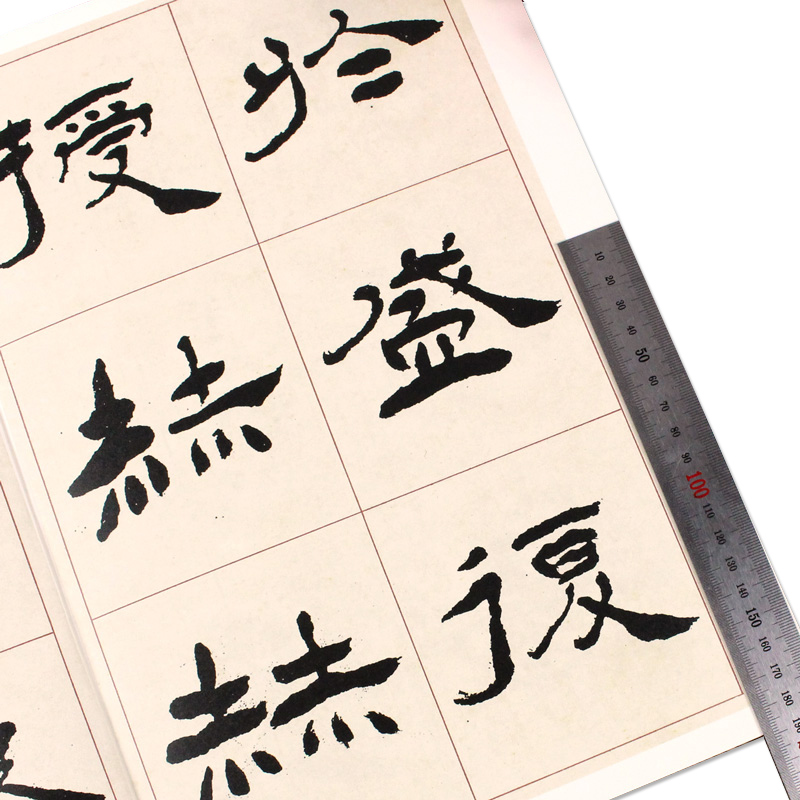 於盛復
授赫赫
10 20 30 40 50 60 70 80 90 100 110 120 130 140 150 160 170 180 190